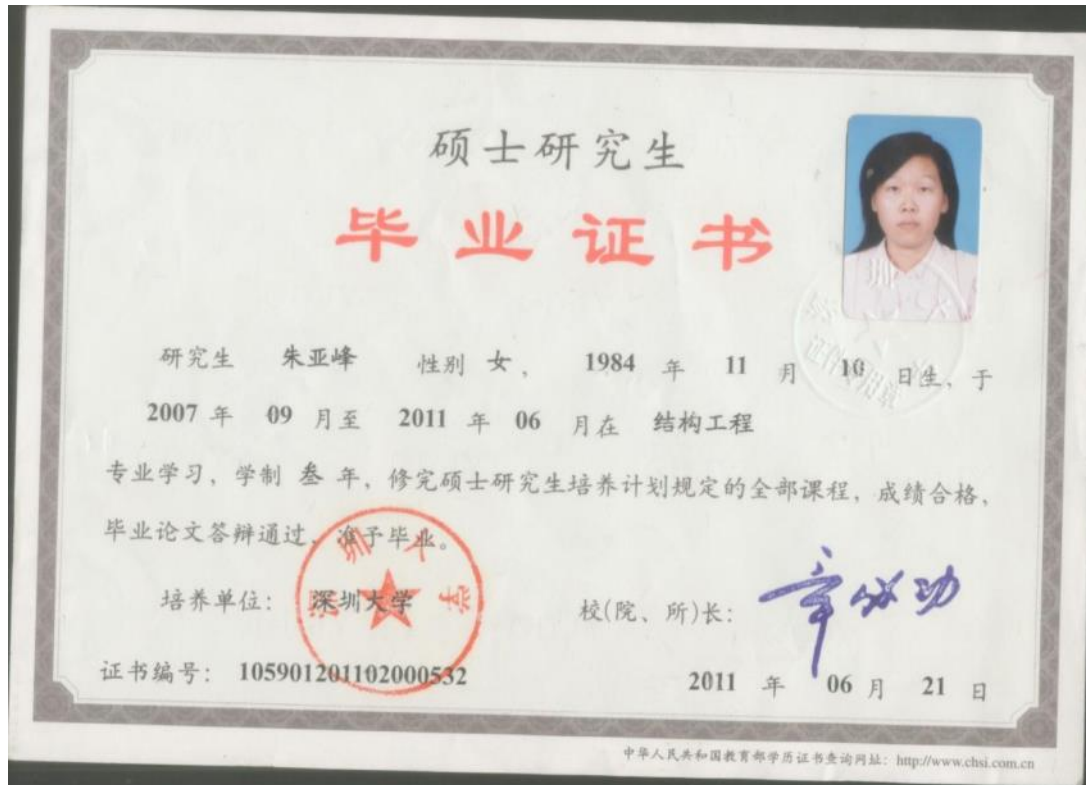 硕士研究生
毕业证书
研究生 朱亚峰 性别 女， 1984 年 11 月 10 日生、于
2007 年 09 月至 2011 年 06 月在 结构工程
专业学习，学制 叁 年，修完硕士研究生培养计划规定的全部课程，成绩合格，
毕业论文答辩通过，准予毕业。
培养单位： 深圳大学 校(院、所)长： 章必功
深圳大学
证书编号： 105901201102000532 2011 年 06 月 21 日
中华人民共和国教育部学历证书查询网址：http://www.chsi.com.cn